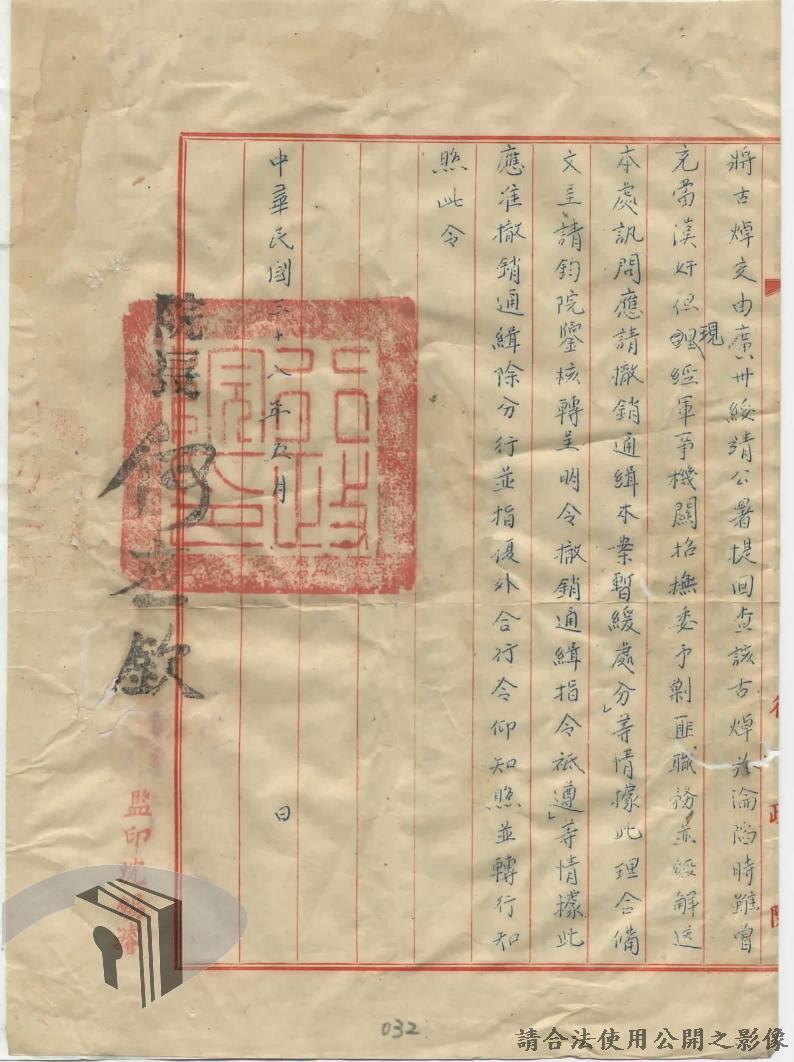 將古焯交由廣州綏靖公署提回查該古焯於淪陷時雖曾
充當漢奸但現經軍事機關招撫委予剿匪職務亦經解送
本處訊問應請撤銷通緝本案暫緩處分」等情據此理合備
文呈請鈞院鑒核轉呈明令撤銷通緝指令祗遵」等情據此
應准撤銷通緝除分行並指復外合行令仰知照並轉行知
照此令
中華民國三十八年五月 日
院長何應欽
監印沈
行政院
032
請合法使用公開之影像